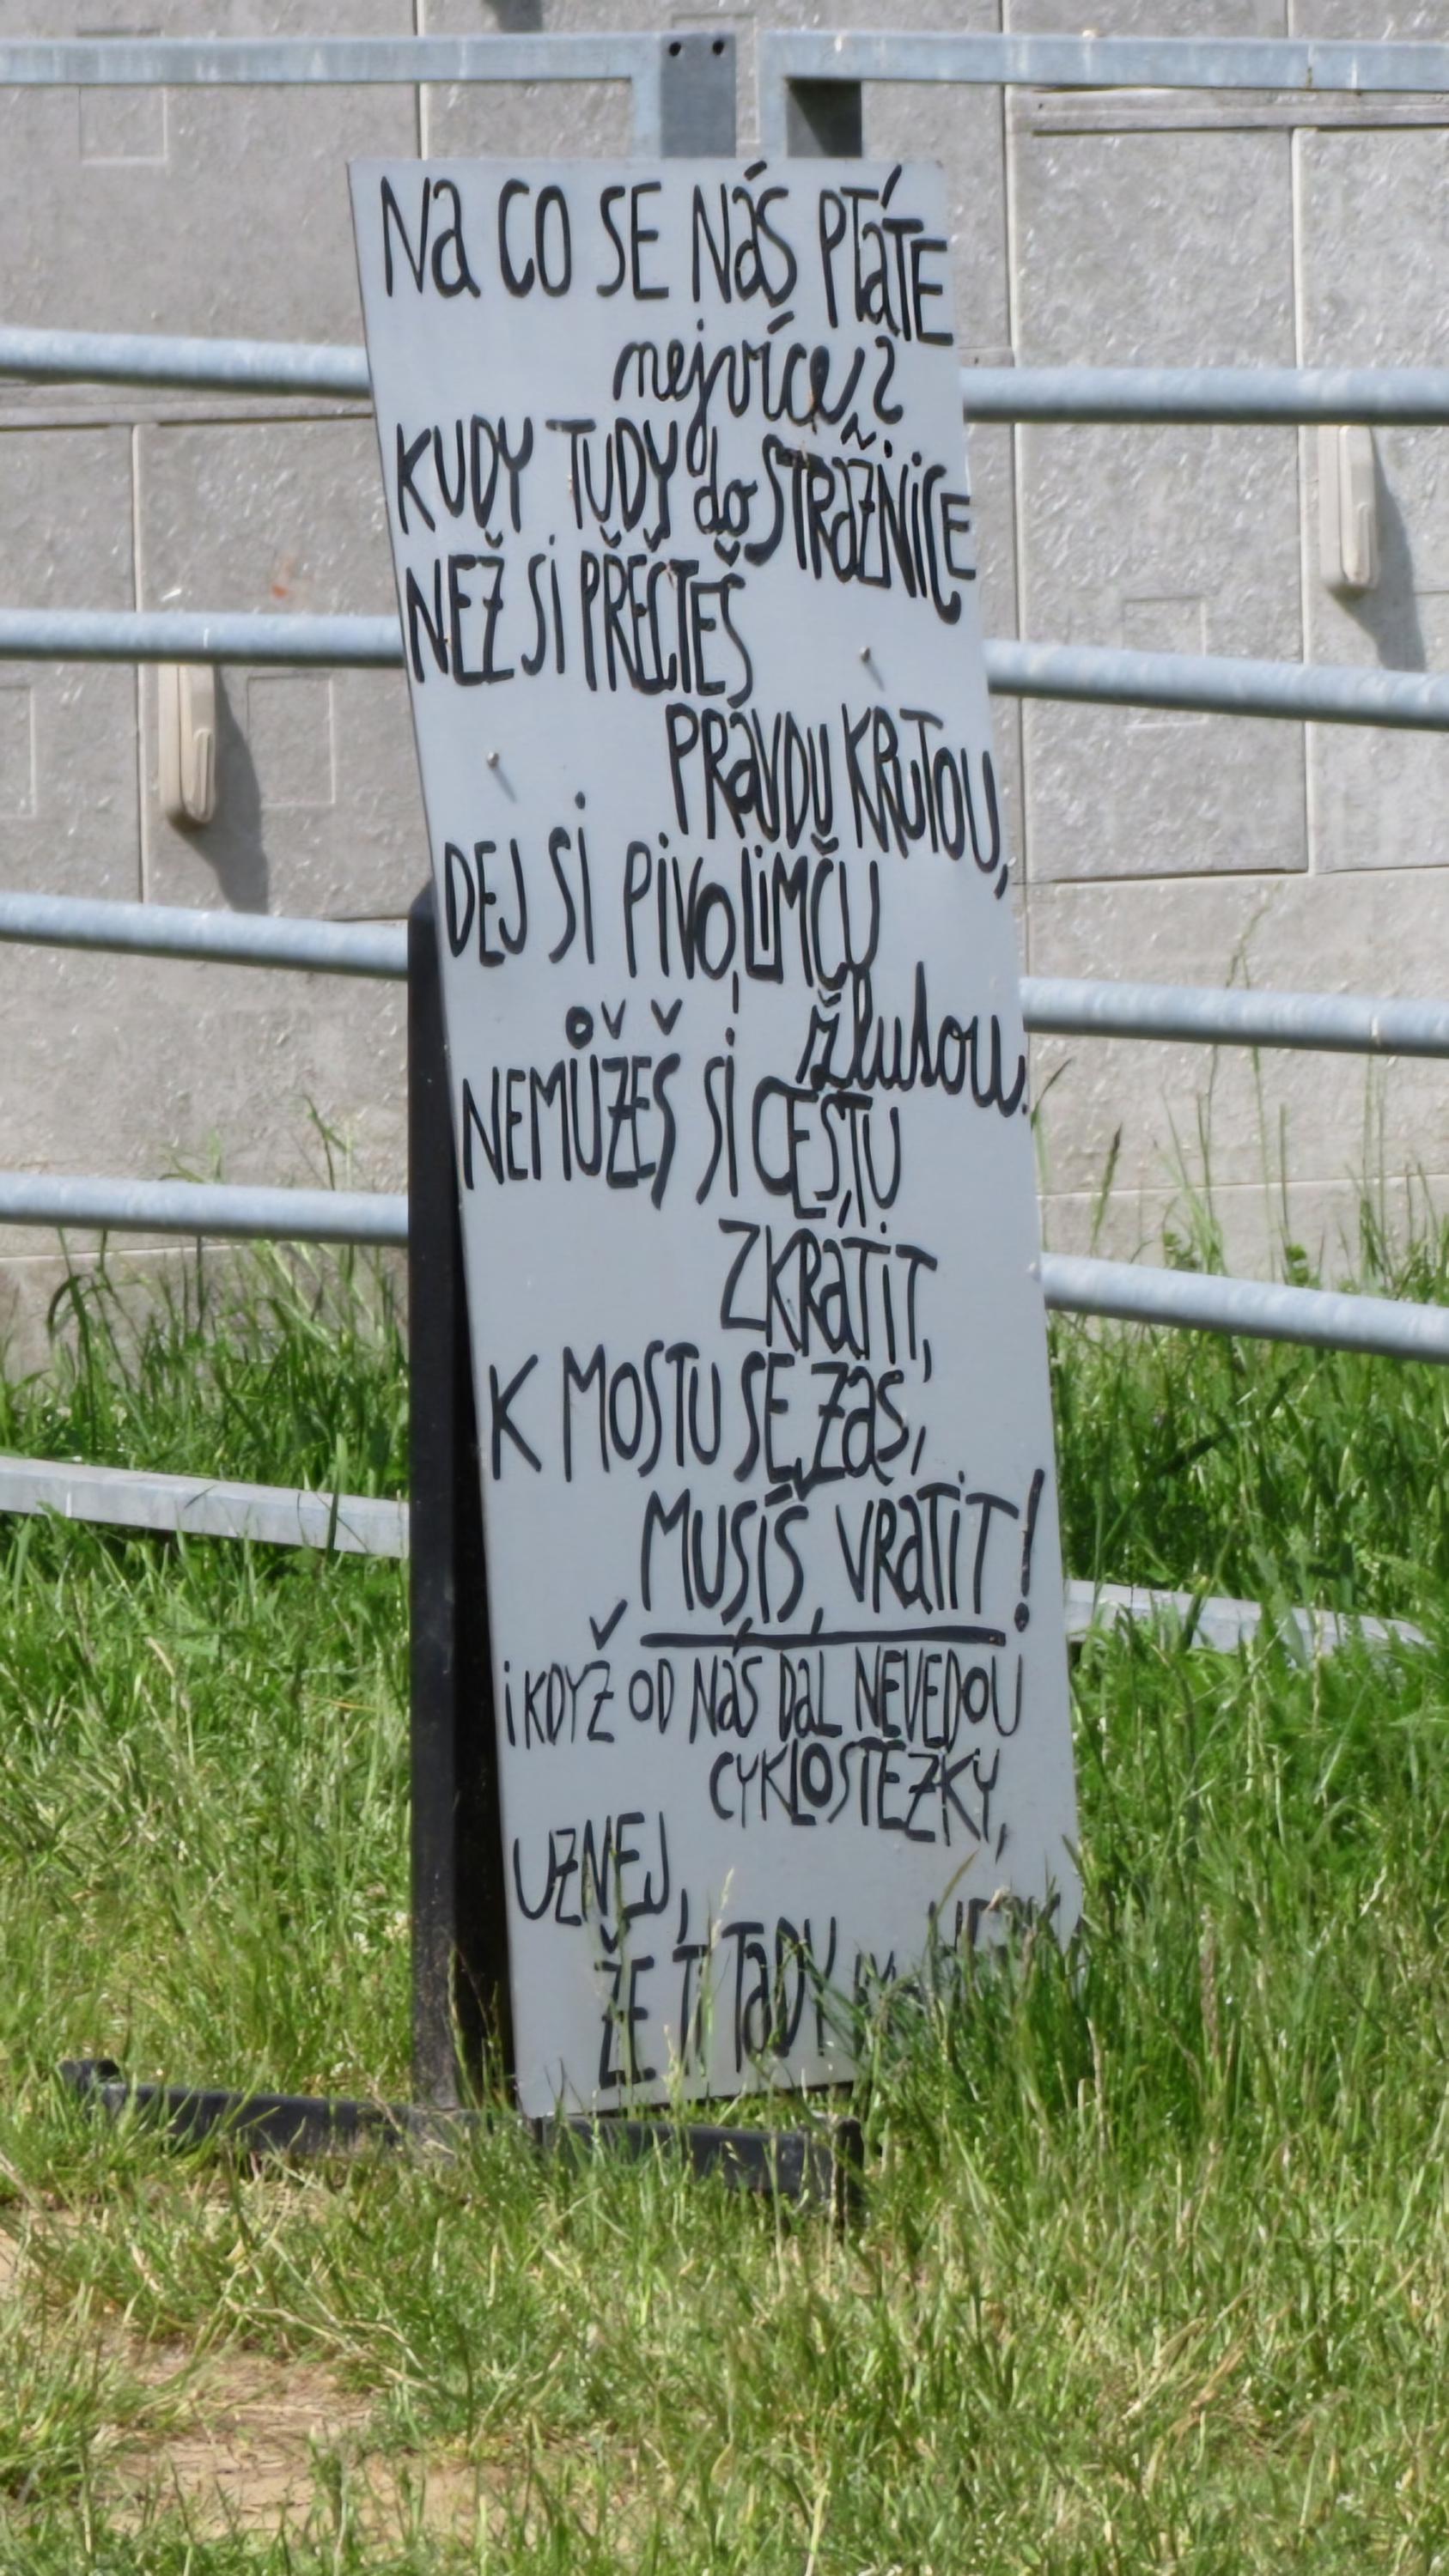 Na CO SE Nás PTáTE
nejvíce?
KUDY TUDY do STRážNiCE
NEŽ Si PŘEČTEŠ
PRaVDU KRUTOU,
DEJ Si PiVO, LiMČU
žlutou.
NEMŮŽEŠ Si CESTU
ZKRáTiT,
K MOSTU SE Zas,
MUSÍŠ VRáTiT!
i KDYŽ OD Nás DáL NEVEDOU
CYKLOSTEZKY,
UZNEJ,
ŽE Ti TaDY